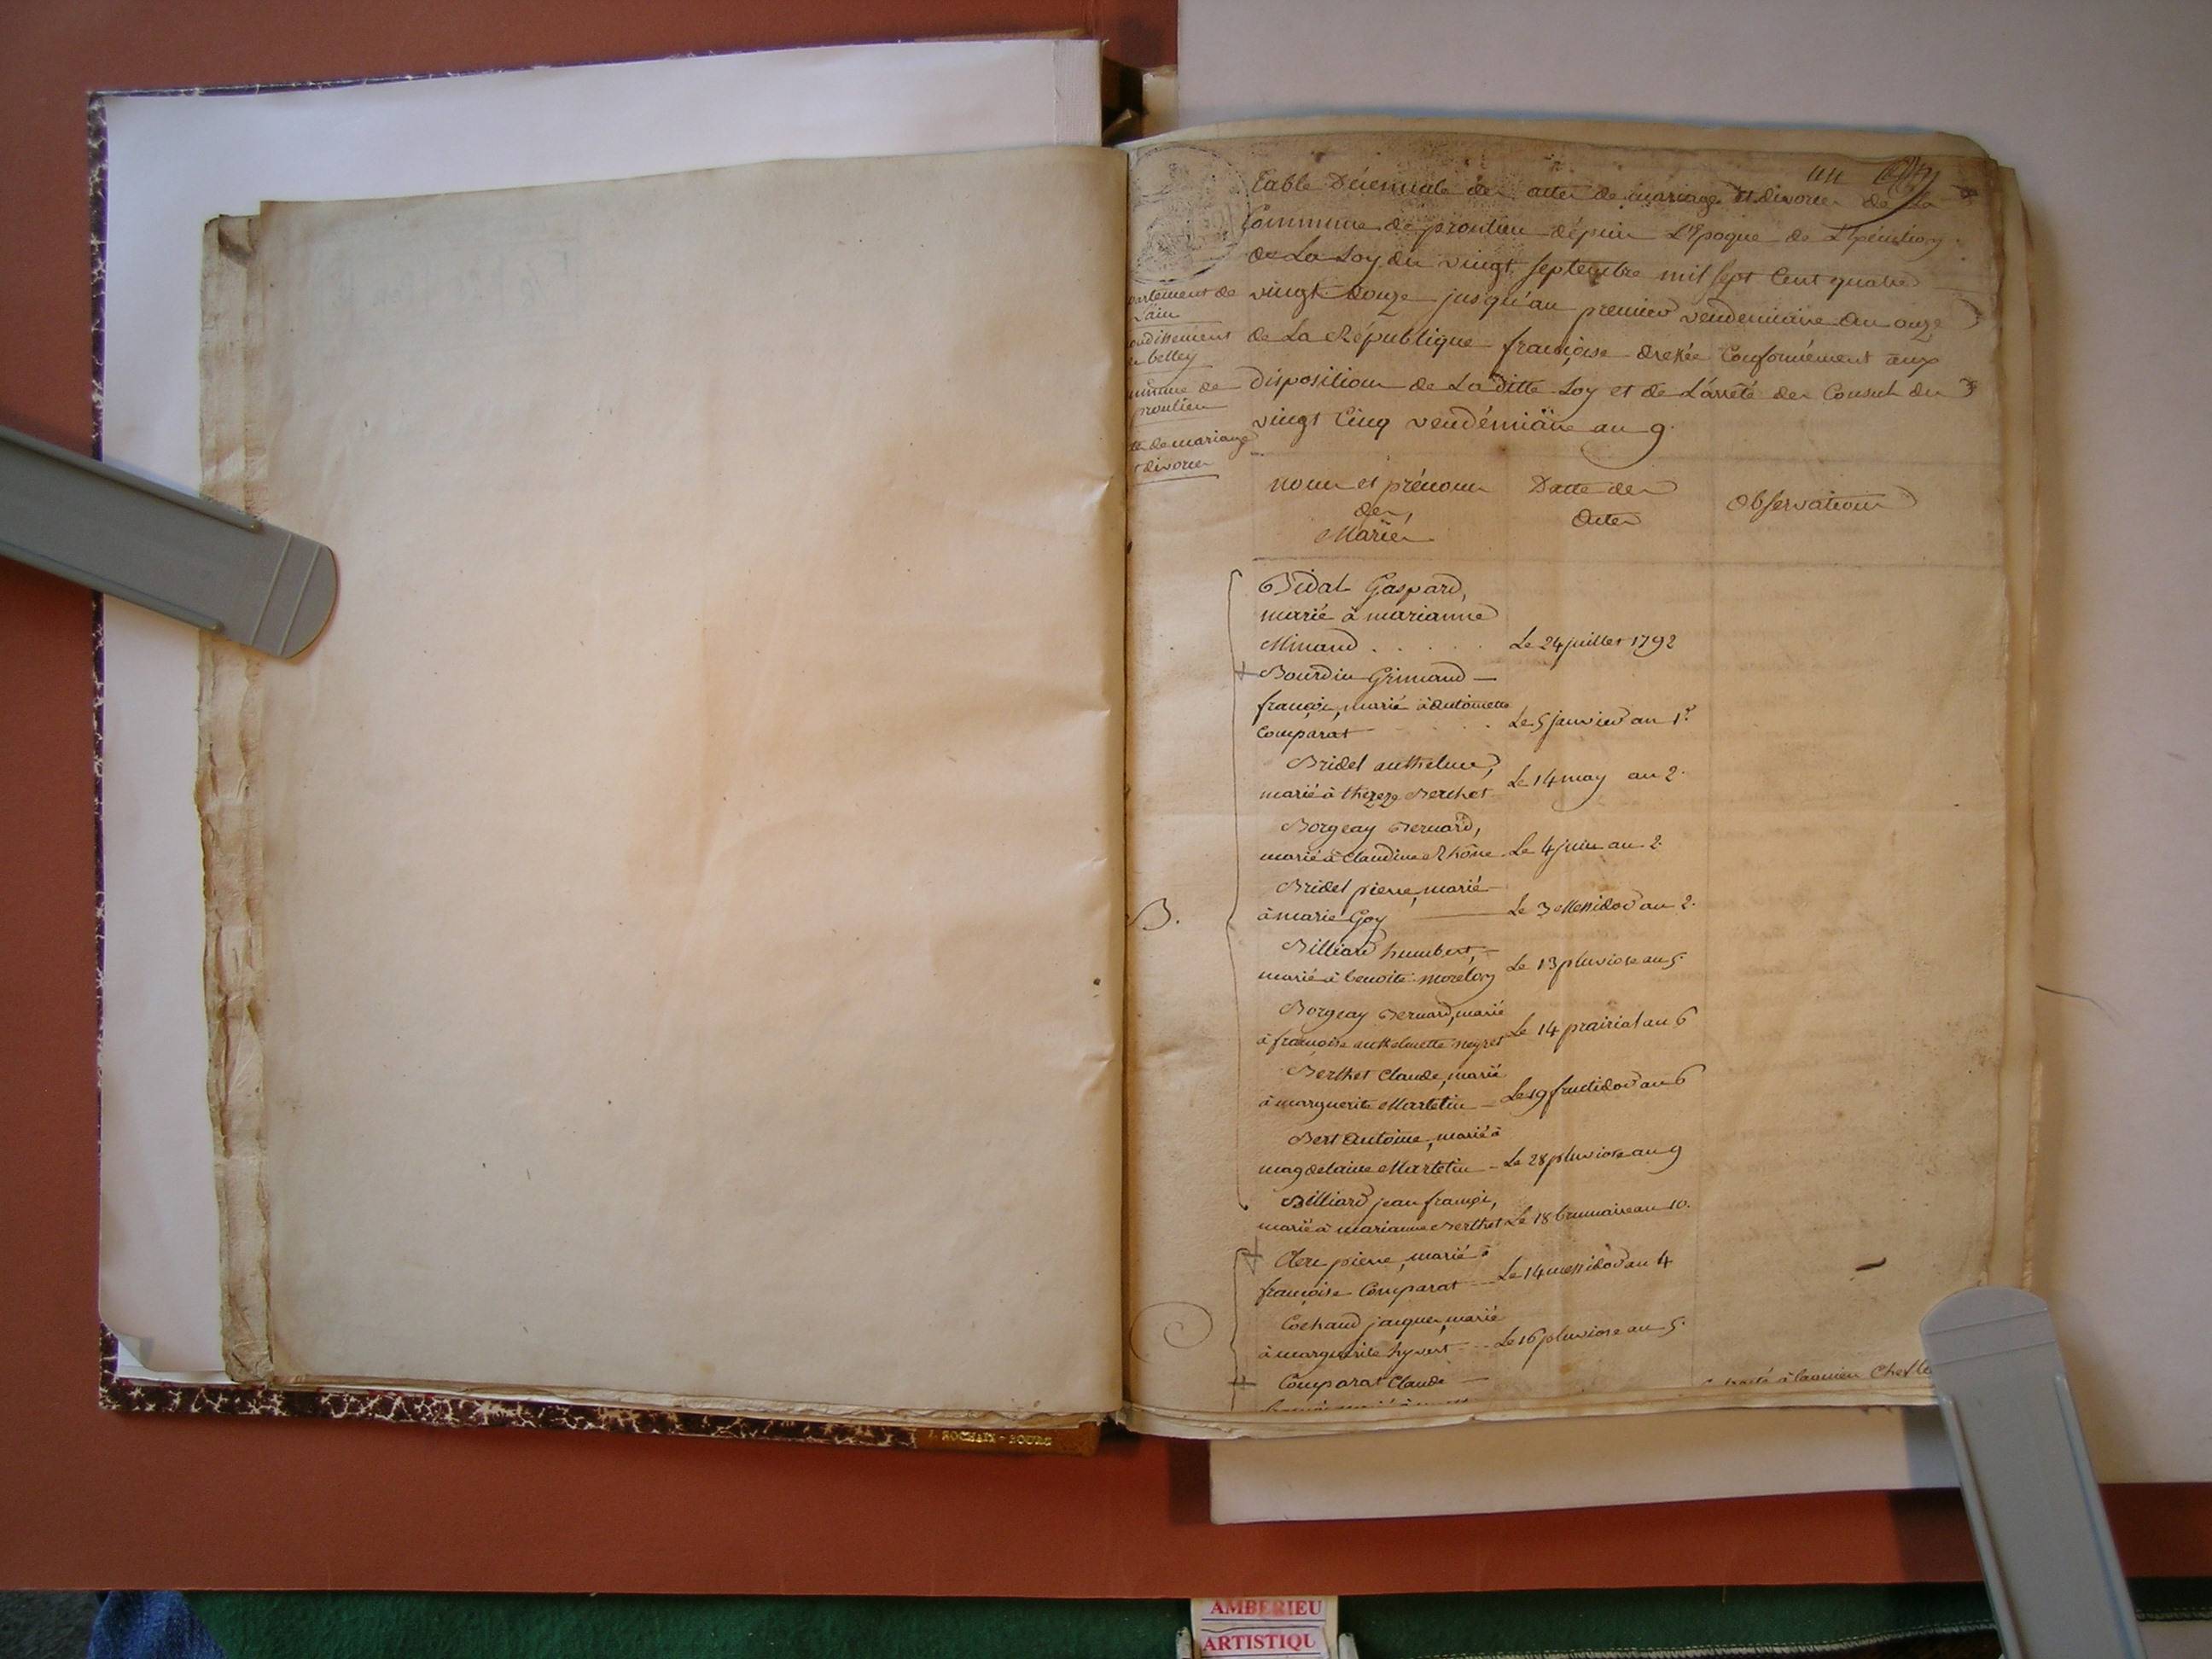 Table Décennale des actes de mariage et divorces de La
Commune de proulieu dépuis L'Epoque de
de La Loy du vingt septembre mil sept Cent quatre
vingt Douze jusqu'au premier vendemiaire an onze
de La République françoise dressée Conformément aux
Dispositions de La ditte Loy et de L'arrété des Consuls du
vingt Cinq vendémiaire an 9.
partement de
L'ain
ondissement
de belley
mmune de
proulieu
tes de mariage
et divorces
noms et prénoms
des
Mariés
Datte des
Actes
Observations
B.
Bidal Gaspard,
marié à marianne
Minand . . . . . Le 24 juillet 1792
+ Bourdin Grimand —
françois, marié à Antoinette
Comparat Le 5 janvier an 1r
Bridel anthelme,
marié à thèreze Berthet Le 14 may an 2.
Borgeay Bernard,
marié à Claudine Rhône Le 4 juin an 2.
Bridel pierre, marié
à marie Goy Le 3 Messidor an 2.
Billiard humbert,
marié à benoite morelon Le 13 pluviose an 5.
Borgeay Bernard, marié
à françoise anthelmette neyret Le 14 prairial an 6
Berthet Claude, marié
à marguerite Martelin Le 19 fructidor an 6
Bert Antoine, marié à
magdelaine Martelin Le 28 pluviose an 9
Billiard jean françois,
marié à marianne Berthet Le 18 brumaire an 10.
+ Clerc pierre, marié à
françoise Comparat Le 14 messidor an 4
Cochand jacques, marié
à marguerite hyvert Le 16 pluviose an 5.
+ Comparat Claude —
à lagnieu Chef lieu
ROCHAIX - BOURG
AMBERIEU
ARTISTIQU